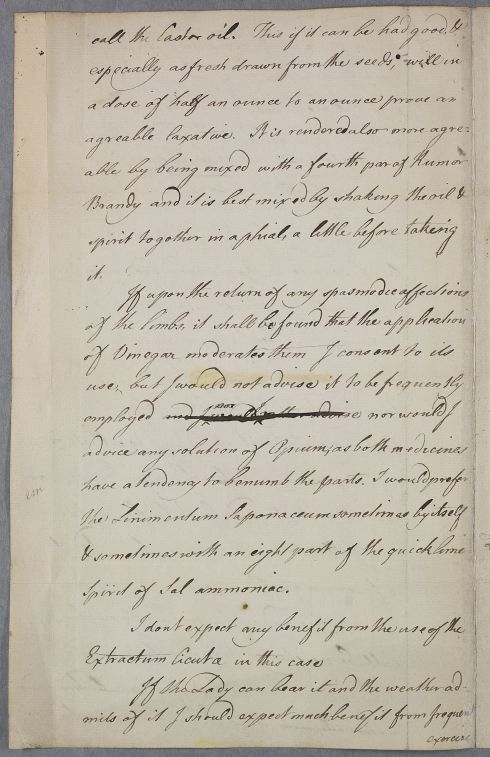 call the Castor oil. This if it can be had good, &
especially as fresh drawn from the seeds, will in
a dose of half an ounce to an ounce prove an
agreable laxative. It is rendered also more agre=
able by being mixed with a fourth par of Rum or
Brandy and it is best mixed by shaking the oil &
spirit together in a phial, a little before taking
it.
If upon the return of any spasmodic affections
of the limbs, it shall be found that the application
of Vinegar moderates them I consent to its
use, but I would not advise it to be frequently
employed nor would I
advice any solution of Opium, as both medicines
have a tendency to benumb the parts. I would prefer
the Linimentum Saponaceum sometimes by itself
& sometimes with an eight part of the quick lime
Spirit of Sal ammoniac.
I dont expect any benefit from the use of the
Extractum Cicutæ in this case
If the Lady can bear it and the weather ad-
mits of it I should expect much benefit from frequent
exercise